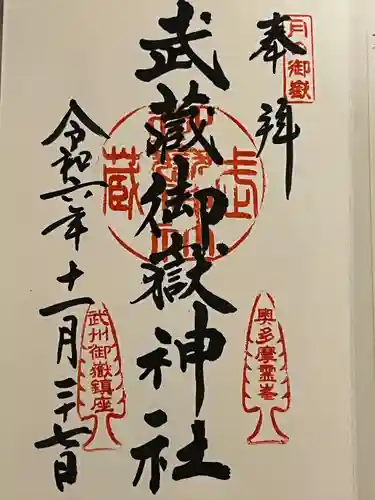 奉拝
月御嶽
武蔵御嶽神社
奥多摩霊峯
武州御嶽鎮座
令和六年十一月三十日